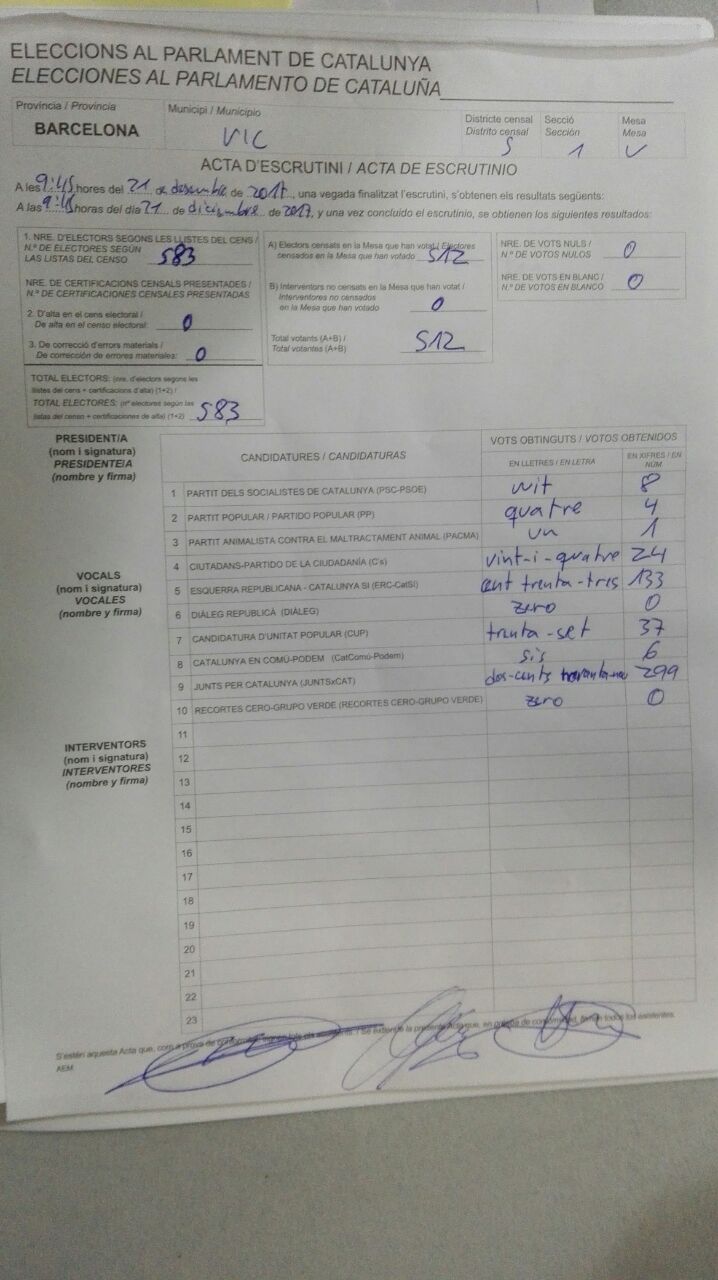 ELECCIONS AL PARLAMENT DE CATALUNYA
ELECCIONES AL PARLAMENTO DE CATALUÑA
Província / Provincia
BARCELONA
Municipi / Municipio
VIC
Districte censal
Distrito censal
5
Secció
Sección
1
Mesa
Mesa
U
ACTA D'ESCRUTINI / ACTA DE ESCRUTINIO
A les 9:45 hores del 21 de desembre de 2017, una vegada finalitzat l'escrutini, s'obtenen els resultats següents:
A las 9:45 horas del día 21 de diciembre de 2017, y una vez concluido el escrutinio, se obtienen los siguientes resultados:
1. NRE. D'ELECTORS SEGONS LES LLISTES DEL CENS /
N.º DE ELECTORES SEGÚN
LAS LISTAS DEL CENSO 583
NRE. DE CERTIFICACIONS CENSALS PRESENTADES /
N.º DE CERTIFICACIONES CENSALES PRESENTADAS
2. D'alta en el cens electoral /
De alta en el censo electoral: 0
3. De correcció d'errors materials /
De corrección de errores materiales: 0
TOTAL ELECTORS: (nre. d'electors segons les
llistes del cens + certificacions d'alta) (1+2) /
TOTAL ELECTORES: (nº electores según las
listas del censo + certificaciones de alta) (1+2) 583
A) Electors censats en la Mesa que han votat / Electores
censados en la Mesa que han votado 512
B) Interventors no censats en la Mesa que han votat /
Interventores no censados
en la Mesa que han votado 0
Total votants (A+B) /
Total votantes (A+B) 512
NRE. DE VOTS NULS /
N.º DE VOTOS NULOS 0
NRE. DE VOTS EN BLANC /
N.º DE VOTOS EN BLANCO 0
PRESIDENT/A
(nom i signatura)
PRESIDENTE/A
(nombre y firma)
VOCALS
(nom i signatura)
VOCALES
(nombre y firma)
INTERVENTORS
(nom i signatura)
INTERVENTORES
(nombre y firma)
CANDIDATURES / CANDIDATURAS
VOTS OBTINGUTS / VOTOS OBTENIDOS
EN LLETRES / EN LETRA
EN XIFRES / EN NÚM
1 PARTIT DELS SOCIALISTES DE CATALUNYA (PSC-PSOE) vuit 8
2 PARTIT POPULAR / PARTIDO POPULAR (PP) quatre 4
3 PARTIT ANIMALISTA CONTRA EL MALTRACTAMENT ANIMAL (PACMA) un 1
4 CIUTADANS-PARTIDO DE LA CIUDADANÍA (C's) vint-i-quatre 24
5 ESQUERRA REPUBLICANA - CATALUNYA SI (ERC-CatSI) cent trenta-tres 133
6 DIÀLEG REPUBLICÀ (DIÀLEG) zero 0
7 CANDIDATURA D'UNITAT POPULAR (CUP) trenta-set 37
8 CATALUNYA EN COMÚ-PODEM (CatComú-Podem) sis 6
9 JUNTS PER CATALUNYA (JUNTSxCAT) dos-cents noranta-nou 299
10 RECORTES CERO-GRUPO VERDE (RECORTES CERO-GRUPO VERDE) zero 0
11
12
13
14
15
16
17
18
19
20
21
22
23
S'estén aquesta Acta que, com a prova de conformitat, signen tots els assistents. / Se extiende la presente Acta que, en prueba de conformidad, firman todos los asistentes.
AEM